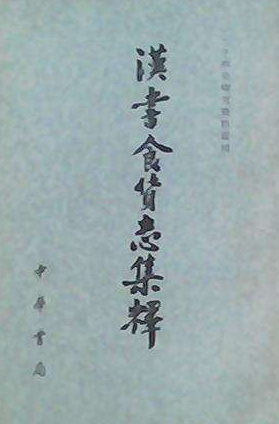 漢書食貨志集釋
中華書局